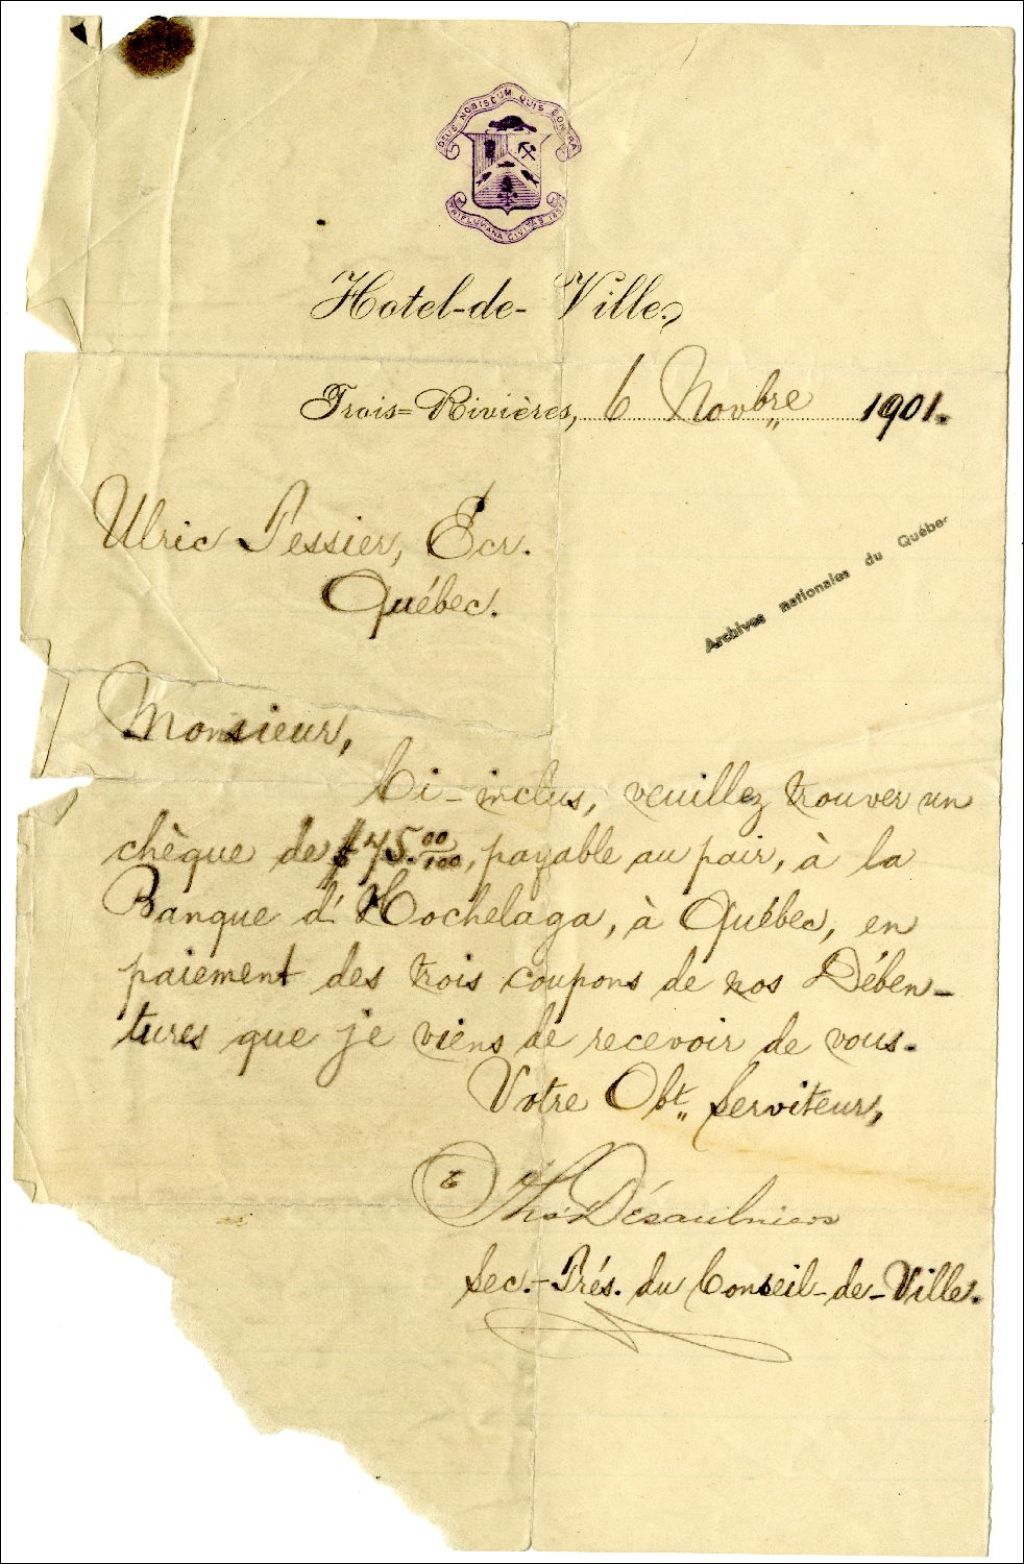 DEUS NOBISCUM QUIS CONTRA
TRIFLUVIANA CIVITAS 1857
Hotel-de-Ville,
Trois=Rivières, 6 Novbre 1901.
Ulric Tessier, Ecr.
Québec.
Archives nationales du Québec
Monsieur,
Ci-inclus, veuillez trouver un
chèque de $75.00/100, payable au pair, à la
Banque d'Hochelaga, à Québec, en
paiement des trois coupons de nos Dében-
tures que je viens de recevoir de vous.
Votre Obt. Serviteur,
Désaulniers
Sec.-Trés. du Conseil-de-Ville.